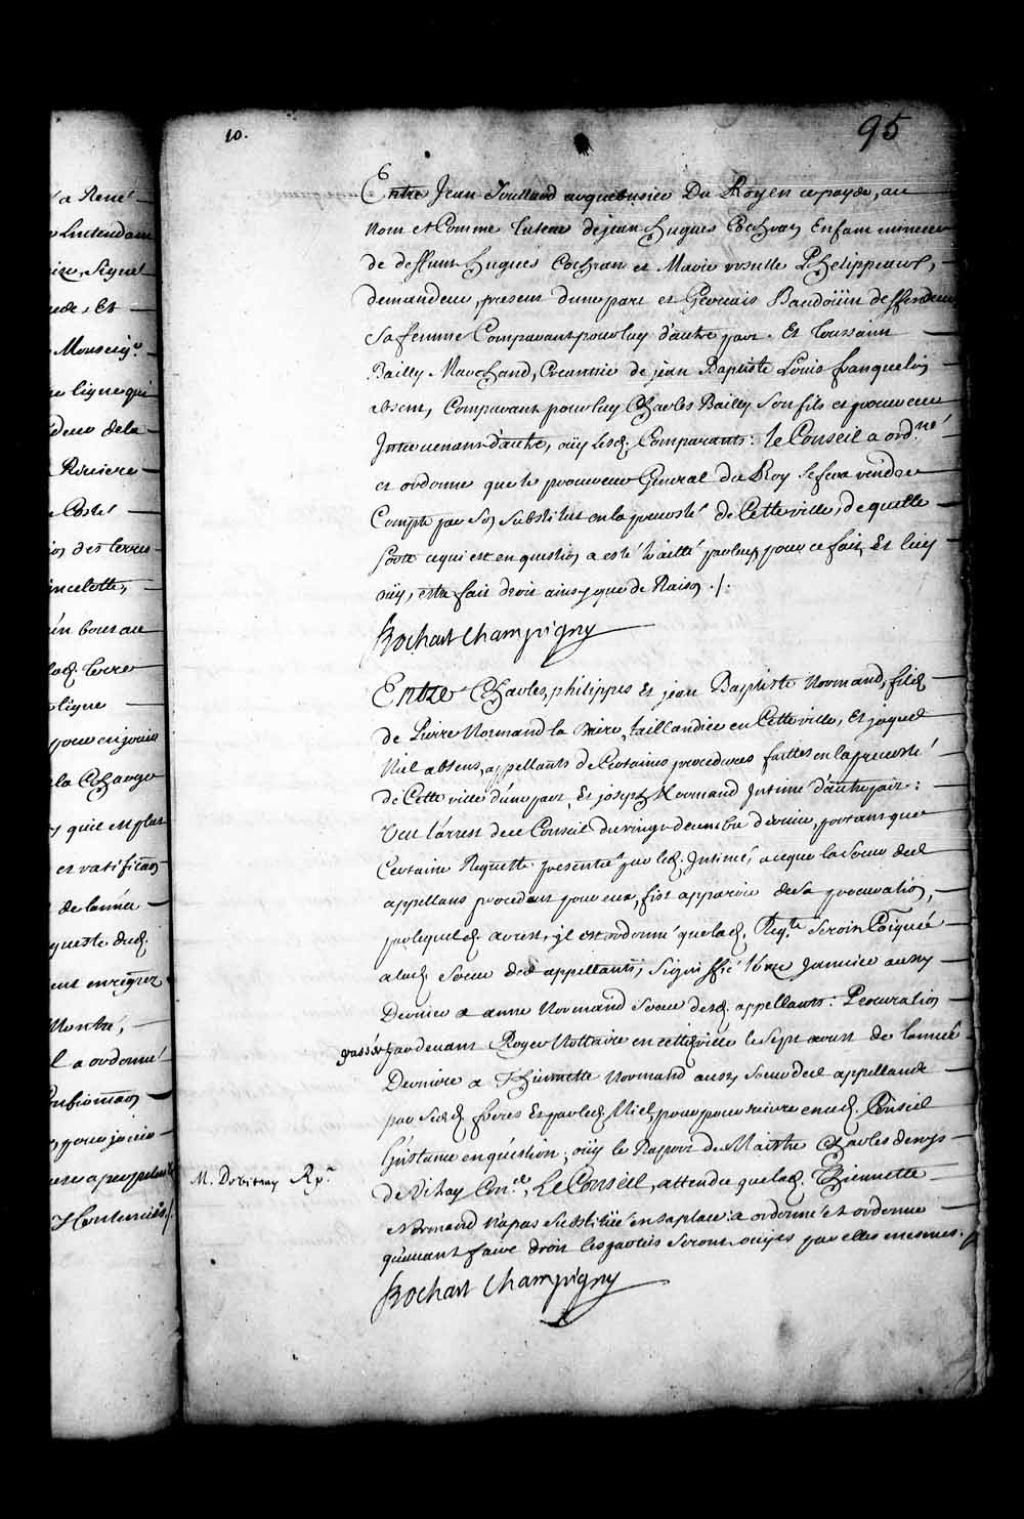 a René
Lintendant
Signé
Et
Monseigr.
ligne qui
dela
Riviere
Costé
des terres
ancelotte,
bout au
Terre
ligne
pour en jouir
la Charge
quil est plus
et ratificaon
de lannée
queste dud.
ent enregrez
Montré,
l a ordonné
10.
95
Entre Jean Soullard arquebusier Du Roy en ce payse, au
Nom et Comme tuteur de jean hugues Cochran Enfant mineur
de deffunt hugues Cochran et Marie ursulle Phelippeaux,
demandeur, present dune part et Gervais Baudoüin deffendeur
Sa femme Comparant pour luy d'autre part. Et Toussaint
Bailly Marchand, Creancier de jean Baptiste Louis franquelin
absent, Comparant pour luy Charles Bailly Son fils et procureur
Intervenant d'autre, oüy lesd. Comparants: le Conseil a ordné
et ordonne que le procureur General du Roy Se fera rendre
Compte par Son Substitut en la prevosté de Cette ville, de quelle
Sorte ce qui est en question a esté baillé par luy, pour ce fait, Et luy
oüy, estre fait droit ainsy que de Raison ./:
Bochart Champigny
Entre Charles, philippes Et jean Baptiste Normand, filz
de Pierre Normand la Briere, taillandier en Cette ville, Et jaques
Niel absens, appellants de Certaines procedures faittes en la prevosté
de Cette ville d'une part, Et joseph Normand Intimé d'autre part:
Veu l'arrest de ce Conseil du vingt decembre dernier, portant que
Certaine Requette presentée par led. Intimé, a ce que la Soeur desd
appellans procedant pour eux, fist apparoir de sa procuration,
par lequel d. arrest, jl est ordonné que lad. Reqte Seroit Coiquée
a lad. Soeur desd appellants, Signiffié le Janvier aussy
Dernier a anne Normand Soeur desd. appellants: Procuration
passée pardevant Roger Nottaire en cette ville le Sept aoust de lannée
Derniere a Thiennette Normand aussy Soeur desd appellants
par Sesd. freres Et par led. Niel, pour poursuivre en ced. Conseil
L'instance en question, oüy le Raport de Maistre Charles denys
M. Devitray Rr.
de Vitray Conler, Le Conseil, attendu que lad. Thiennette
Normand n'a pas Substitüé en sa place: a ordonné et ordonne
qu'avant faire droit les parties Seront ouyes par elles mesmes./
Bochart Champigny